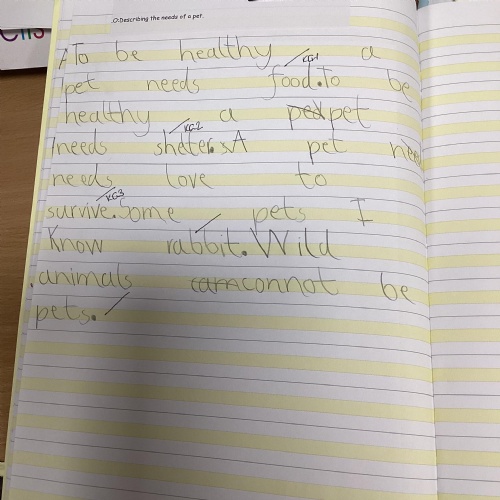 .O:Describing the needs of a pet.
To be healthy a
KG1
pet needs food.To be
healthy a pet
KG2
needs sheter.sA pet need
needs love to
KG3
survive.Some pets I
Know rabbit.Wild
animals connot be
pets.